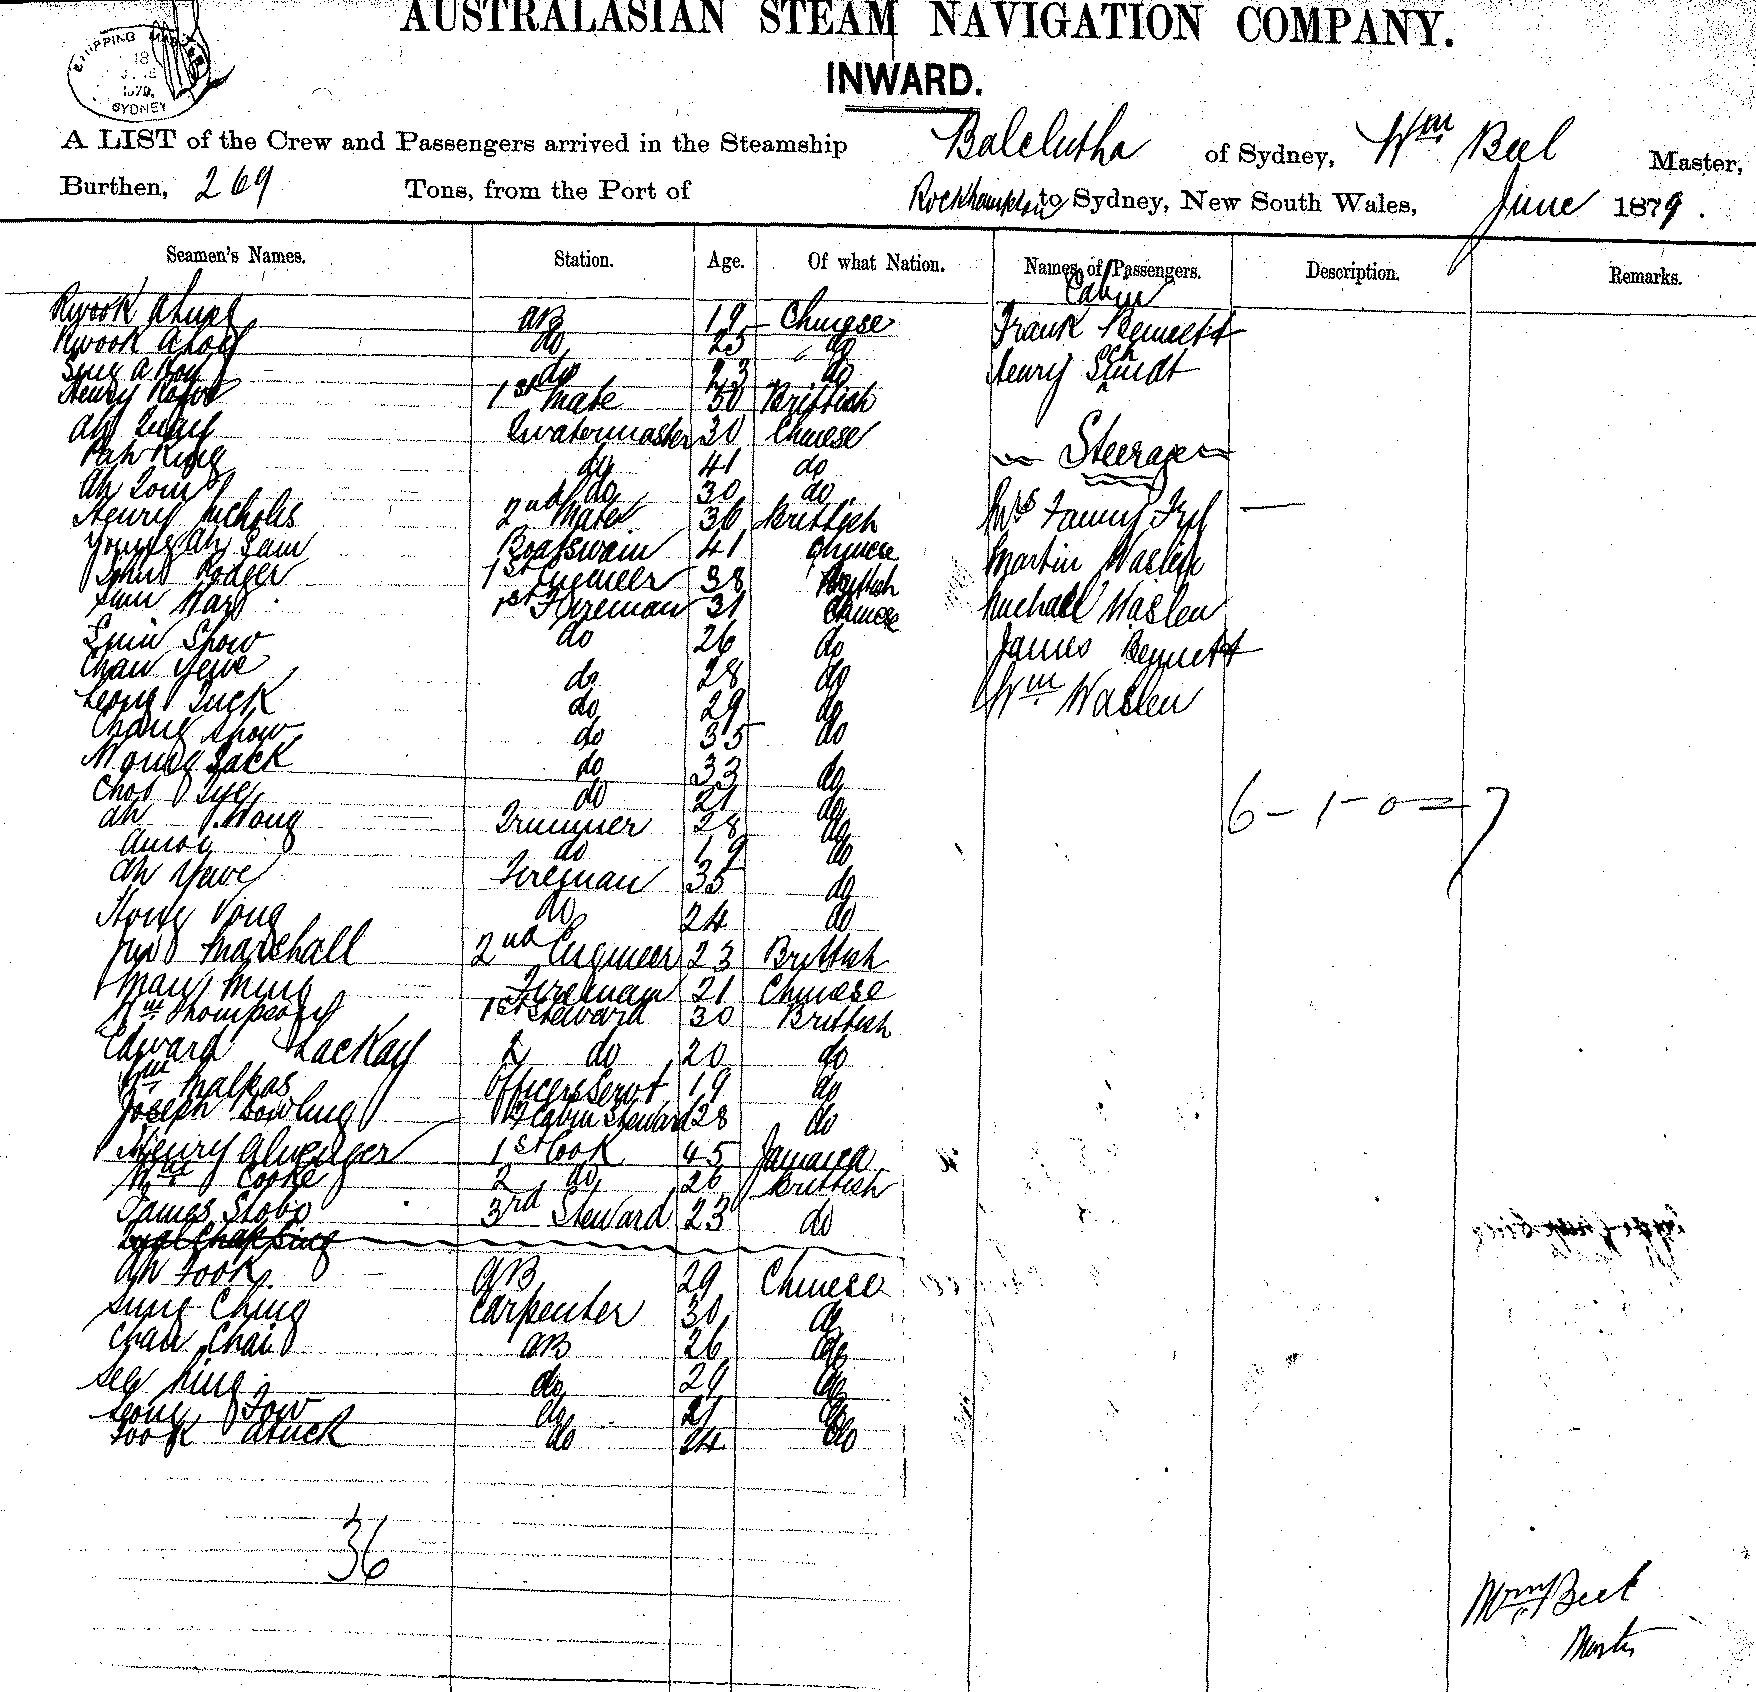 AUSTRALASIAN STEAM NAVIGATION COMPANY.
INWARD.
SHIPPING MASTER
18
1879.
SYDNEY
A LIST of the Crew and Passengers arrived in the Steamship Balclutha of Sydney, Wm Beel Master,
Burthen, 269 Tons, from the Port of Rockhampton to Sydney, New South Wales, June 1879.
Seamen's Names. Station. Age. Of what Nation. Names of Passengers. Description. Remarks.
Cabin
Kwook AB 19 Chinese Frank Bennett
Kwook do 25 do
Sing do 23 do Henry Schmidt
Henry 1st Mate 50 Brittish
Ah Quatermaster 30 Chinese
King do 41 do Steerage
Ah do 30 do
Henry Nicholls 2nd Mate 36 Brittish Mrs Fanny
Young Ah Sam Boatswain 41 Chinese Martin Waslen
John Rodger 1st Engineer 38 Brittish
1st Fireman 31 Chinese Michael Waslen
Show do 26 do James Bennett
Chan do 28 do
Leong Tuck do 29 do Wm Waslen
Chang Show do 35 do
Wong Sack do 33 do
Chot do 21 do
6-1-0=7
Ah Wong Trimmer 28 do
Amoy do 19 do
Ah Yowe Fireman 35 do
Hong Vong do 24 do
Marshall 2nd Engineer 23 Brittish
Man Ming Fireman 21 Chinese
Wm Thompson 1st Steward 30 Brittish
Edward Mackay 2 do 20 do
Wm Malpas Officers Servt 19 do
Joseph Bowling F Cabin Steward 28 do
Henry 1st Cook 45 Jamaica
Wm Cooke 2 do 26 Brittish
James Stobo 3rd Steward 23 do
Ah Fook AB 29 Chinese
Sung Ching Carpenter 30 do
Chan Chai AB 26 do
See King do 29 do
Leong Fow do 21 do
Fook Atuck do 24 do
36
Wm Beel
Master